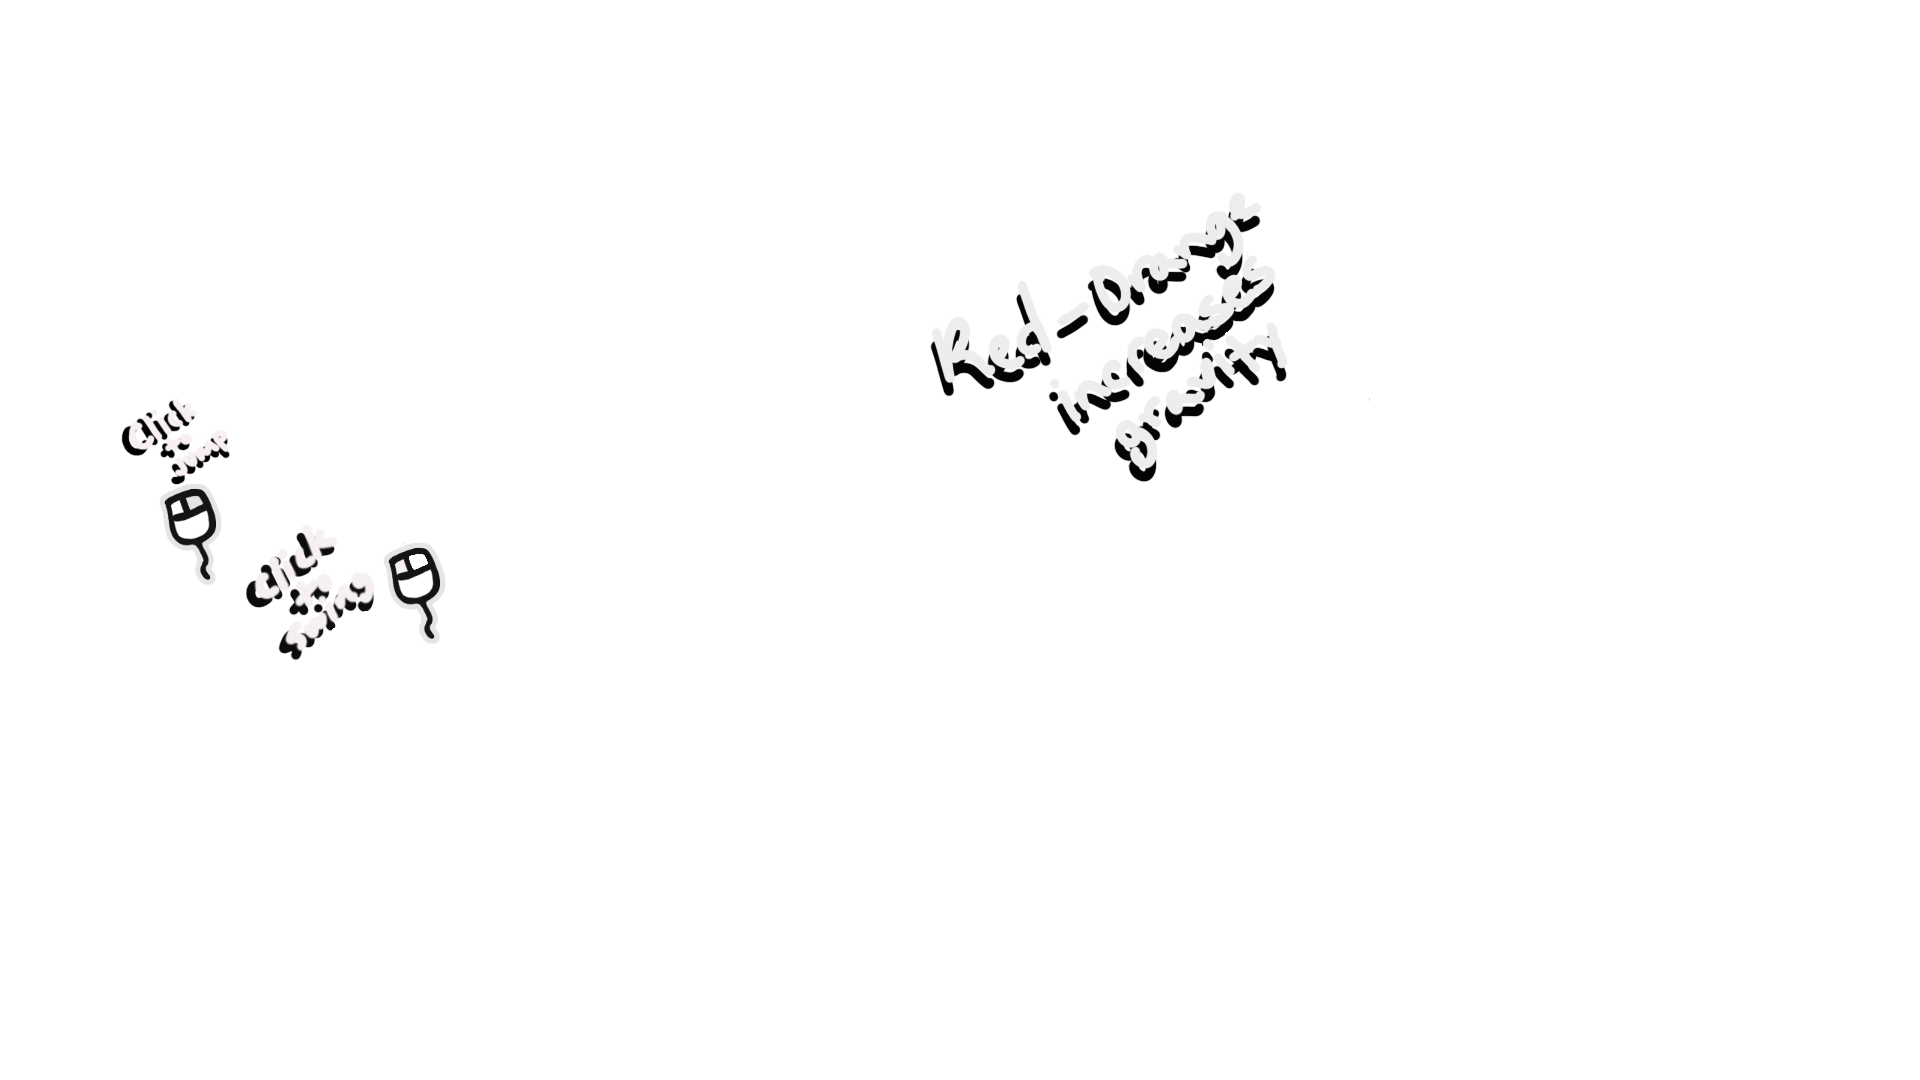 Click
to
Jump
Click
to
Swing
Red-Orange
increases
gravity